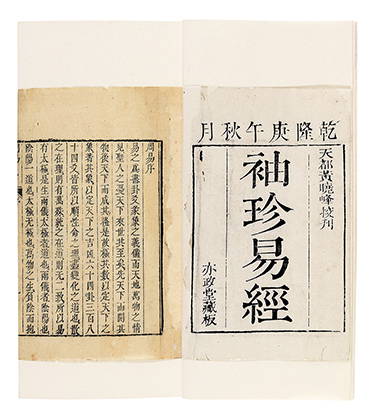 乾隆庚午秋月
天都黃曉峰校刊
袖珍易經
亦政堂藏板
周易序
易之為書卦爻彖象之義備而天地萬物之情
見聖人之憂天下來世其至矣先天下而開其
物後天下而成其務是故極其數以定天下之
象著其象以定天下之吉凶六十四卦三百八
十四爻皆所以順性命之理盡變化之道也散
之在理則有萬殊統之在道則无二致所以易
有太極是生兩儀太極者道也兩儀者陰陽也
陰陽一道也太極无極也萬物之生負陰而抱